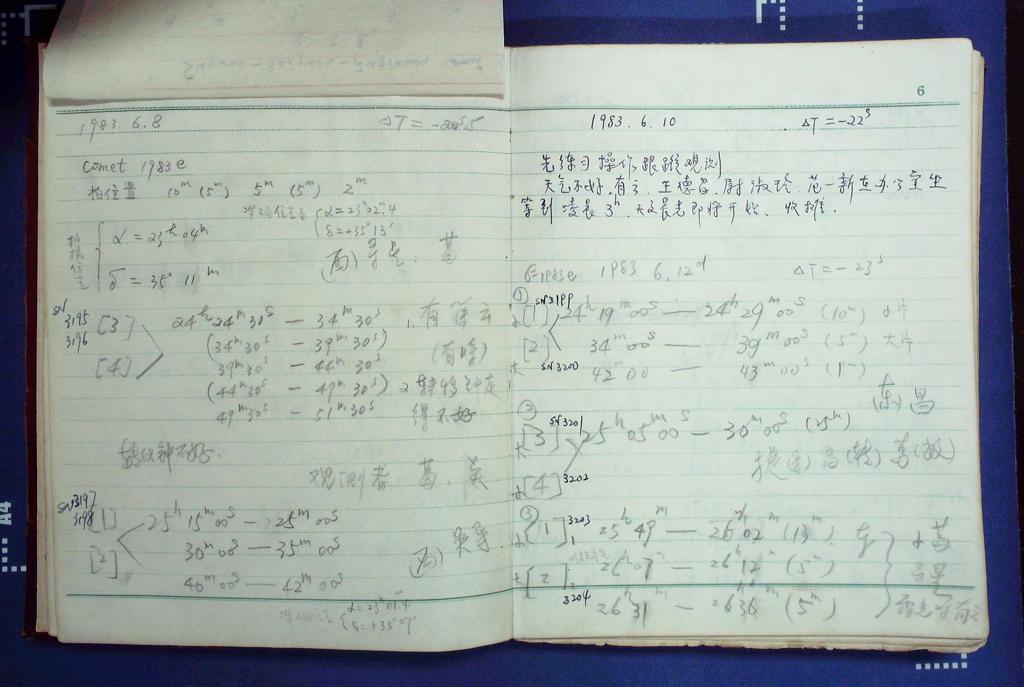 1983.6.8 ΔT=-20ˢ.5
Comet 1983e
拍位置 10ᵐ (5ᵐ) 5ᵐ (5ᵐ) 2ᵐ
α=23ʰ02ᵐ.4
δ=+35°13′
α=23ʰ04ᵐ
δ=35° 11ᵐ
(西) 导星: 葛
SN 3195 [3] 24ʰ24ᵐ30ˢ — 34ᵐ30ˢ 1, 有
3196 (34ᵐ30ˢ — 39ᵐ30ˢ)
[4] 39ᵐ30ˢ — 44ᵐ30ˢ
(44ᵐ30ˢ — 49ᵐ30ˢ) 2 转仪钟走
49ᵐ30ˢ — 51ᵐ30ˢ 得不好
转仪钟不好.
观测者: 葛、吴
SN3197 [1] 25ʰ15ᵐ00ˢ — 25ᵐ00ˢ
3198 30ᵐ00ˢ — 35ᵐ00ˢ
[2] 40ᵐ00ˢ — 42ᵐ00ˢ
(西)
α=23ʰ01ᵐ.4
δ=+35°07′
6
1983.6.10 ΔT=-22ˢ
先练习操作跟踪观测
天气不好,有云,王德昌、尉淑玲、范一新在办公室坐
等到凌晨3ʰ,天文晨光即将开始、收摊.
1983e 1983 6.12ᵈ ΔT=-23ˢ
① SN3199
[1] 24ʰ19ᵐ00ˢ — 24ʰ29ᵐ00ˢ (10ᵐ) 小片
[2] 34ᵐ00ˢ — 39ᵐ00ˢ (5ᵐ) 大片
大 SN3200 42ᵐ00 — 43ᵐ00ˢ (1ᵐ)
(东) 昌
② SN3201
[3] 25ʰ05ᵐ00ˢ — 30ᵐ00ˢ (25ᵐ)
大
小[4] 3202
③ [1] 3203 25ʰ49ᵐ — 26ʰ02 (13ᵐ) 东
大[2] 26ʰ07ᵐ — 26ʰ12ᵐ (5ᵐ) 导星
3204 26ʰ31ᵐ — 26ʰ36ᵐ (5ᵐ)
A4